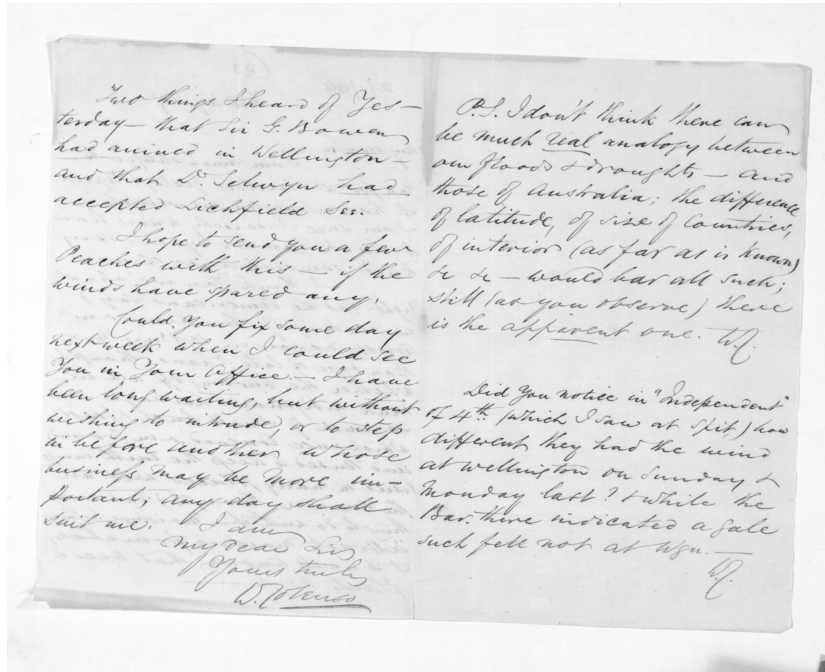 Two things I heard of Yes-
terday – that Sir G. Bowen
had arrived in Wellington –
and that Dr. Selwyn had
accepted Lichfield See.
I hope to send you a few
Peaches with this – if the
winds have spared any.
Could you fix some day
next week when I could see
You in Your Office. – I have
been long waiting, but without
wishing to intrude, or to step
in before another whose
business may be more im-
portant; any day shall
suit me. I am
My dear Sir
Yours truly
W. Colenso
P.S. I don't think there can
be much real analogy between
our floods & droughts – and
those of Australia; the difference
of latitude, of size of Countries,
of interior (as far as is known)
&c &c – would bar all such;
still (as you observe) there
is the apparent one. W.C.
Did You notice in "Independent"
of 4th. (which I saw at Spit,) how
different they had the wind
at Wellington on Sunday &
Monday last? & while the
Bar. there indicated a gale
such fell not at Wgn. –
W.C.